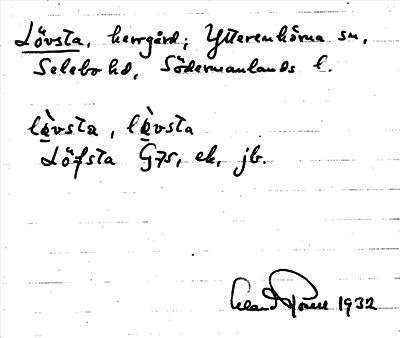 Lövsta, herrgård; Ytterenhörna sn,
Selebo hd, Södermanlands l.
lø̀vsta, lø̀vsta
Löfsta G7s, ek, jb.
1932